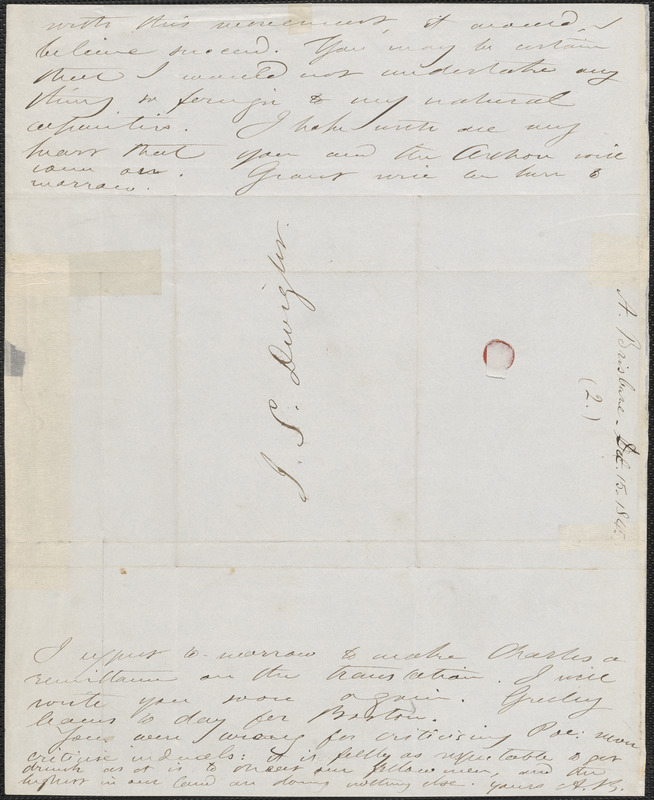 with this movement, it would, I
believe succeed. You may be certain
that I would not undertake any
thing so foreign to my natural
capacities. I hope with all my
heart that you and the Archon will
come on. Grant will be here to
morrow.
J. S. Dwight.
A. Brisbane - Oct. 15. 1845
(2.)
I expect to-morrow to make Charles a
remittance on the translation. I will
write you soon again. Greeley
leaves to day for Boston.
You were wrong for criticising Poe: never
criticise individuals: it is fully as respectable to get
drunk as it is to our fellow men, and the
highest in our land are doing nothing else. Yours A.B.